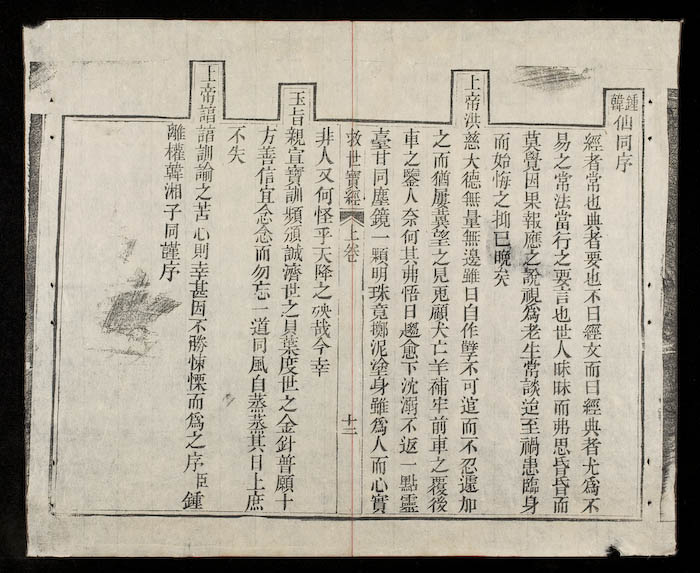 鍾韓仙同序
經者常也典者要也不曰經文而曰經典者尤爲不
易之常法當行之要言也世人昧昧而弗思昏昏而
莫覺因果報應之說視爲老生常談迨至禍患臨身
而始悔之抑已晚矣
上帝洪慈大德無量無邊雖曰自作孽不可逭而不忍遽加
之而猶屢冀望之見兎顧犬亡羊補牢前車之覆後
車之鑒人奈何其弗悟日趨愈下沈溺不返一點靈
臺甘同塵鏡一顆明珠竟擲泥塗身雖爲人而心實
救世寶經 上卷 十二
非人又何怪乎天降之殃哉今幸
玉旨親宣寶訓頻頒誠濟世之貝葉度世之金針普願十
方善信宜念念而勿忘一道同風自蒸蒸其日上庶
不失
上帝諳諳訓諭之苦心則幸甚因不勝悚慄而爲之序臣鍾
離權韓湘子同謹序